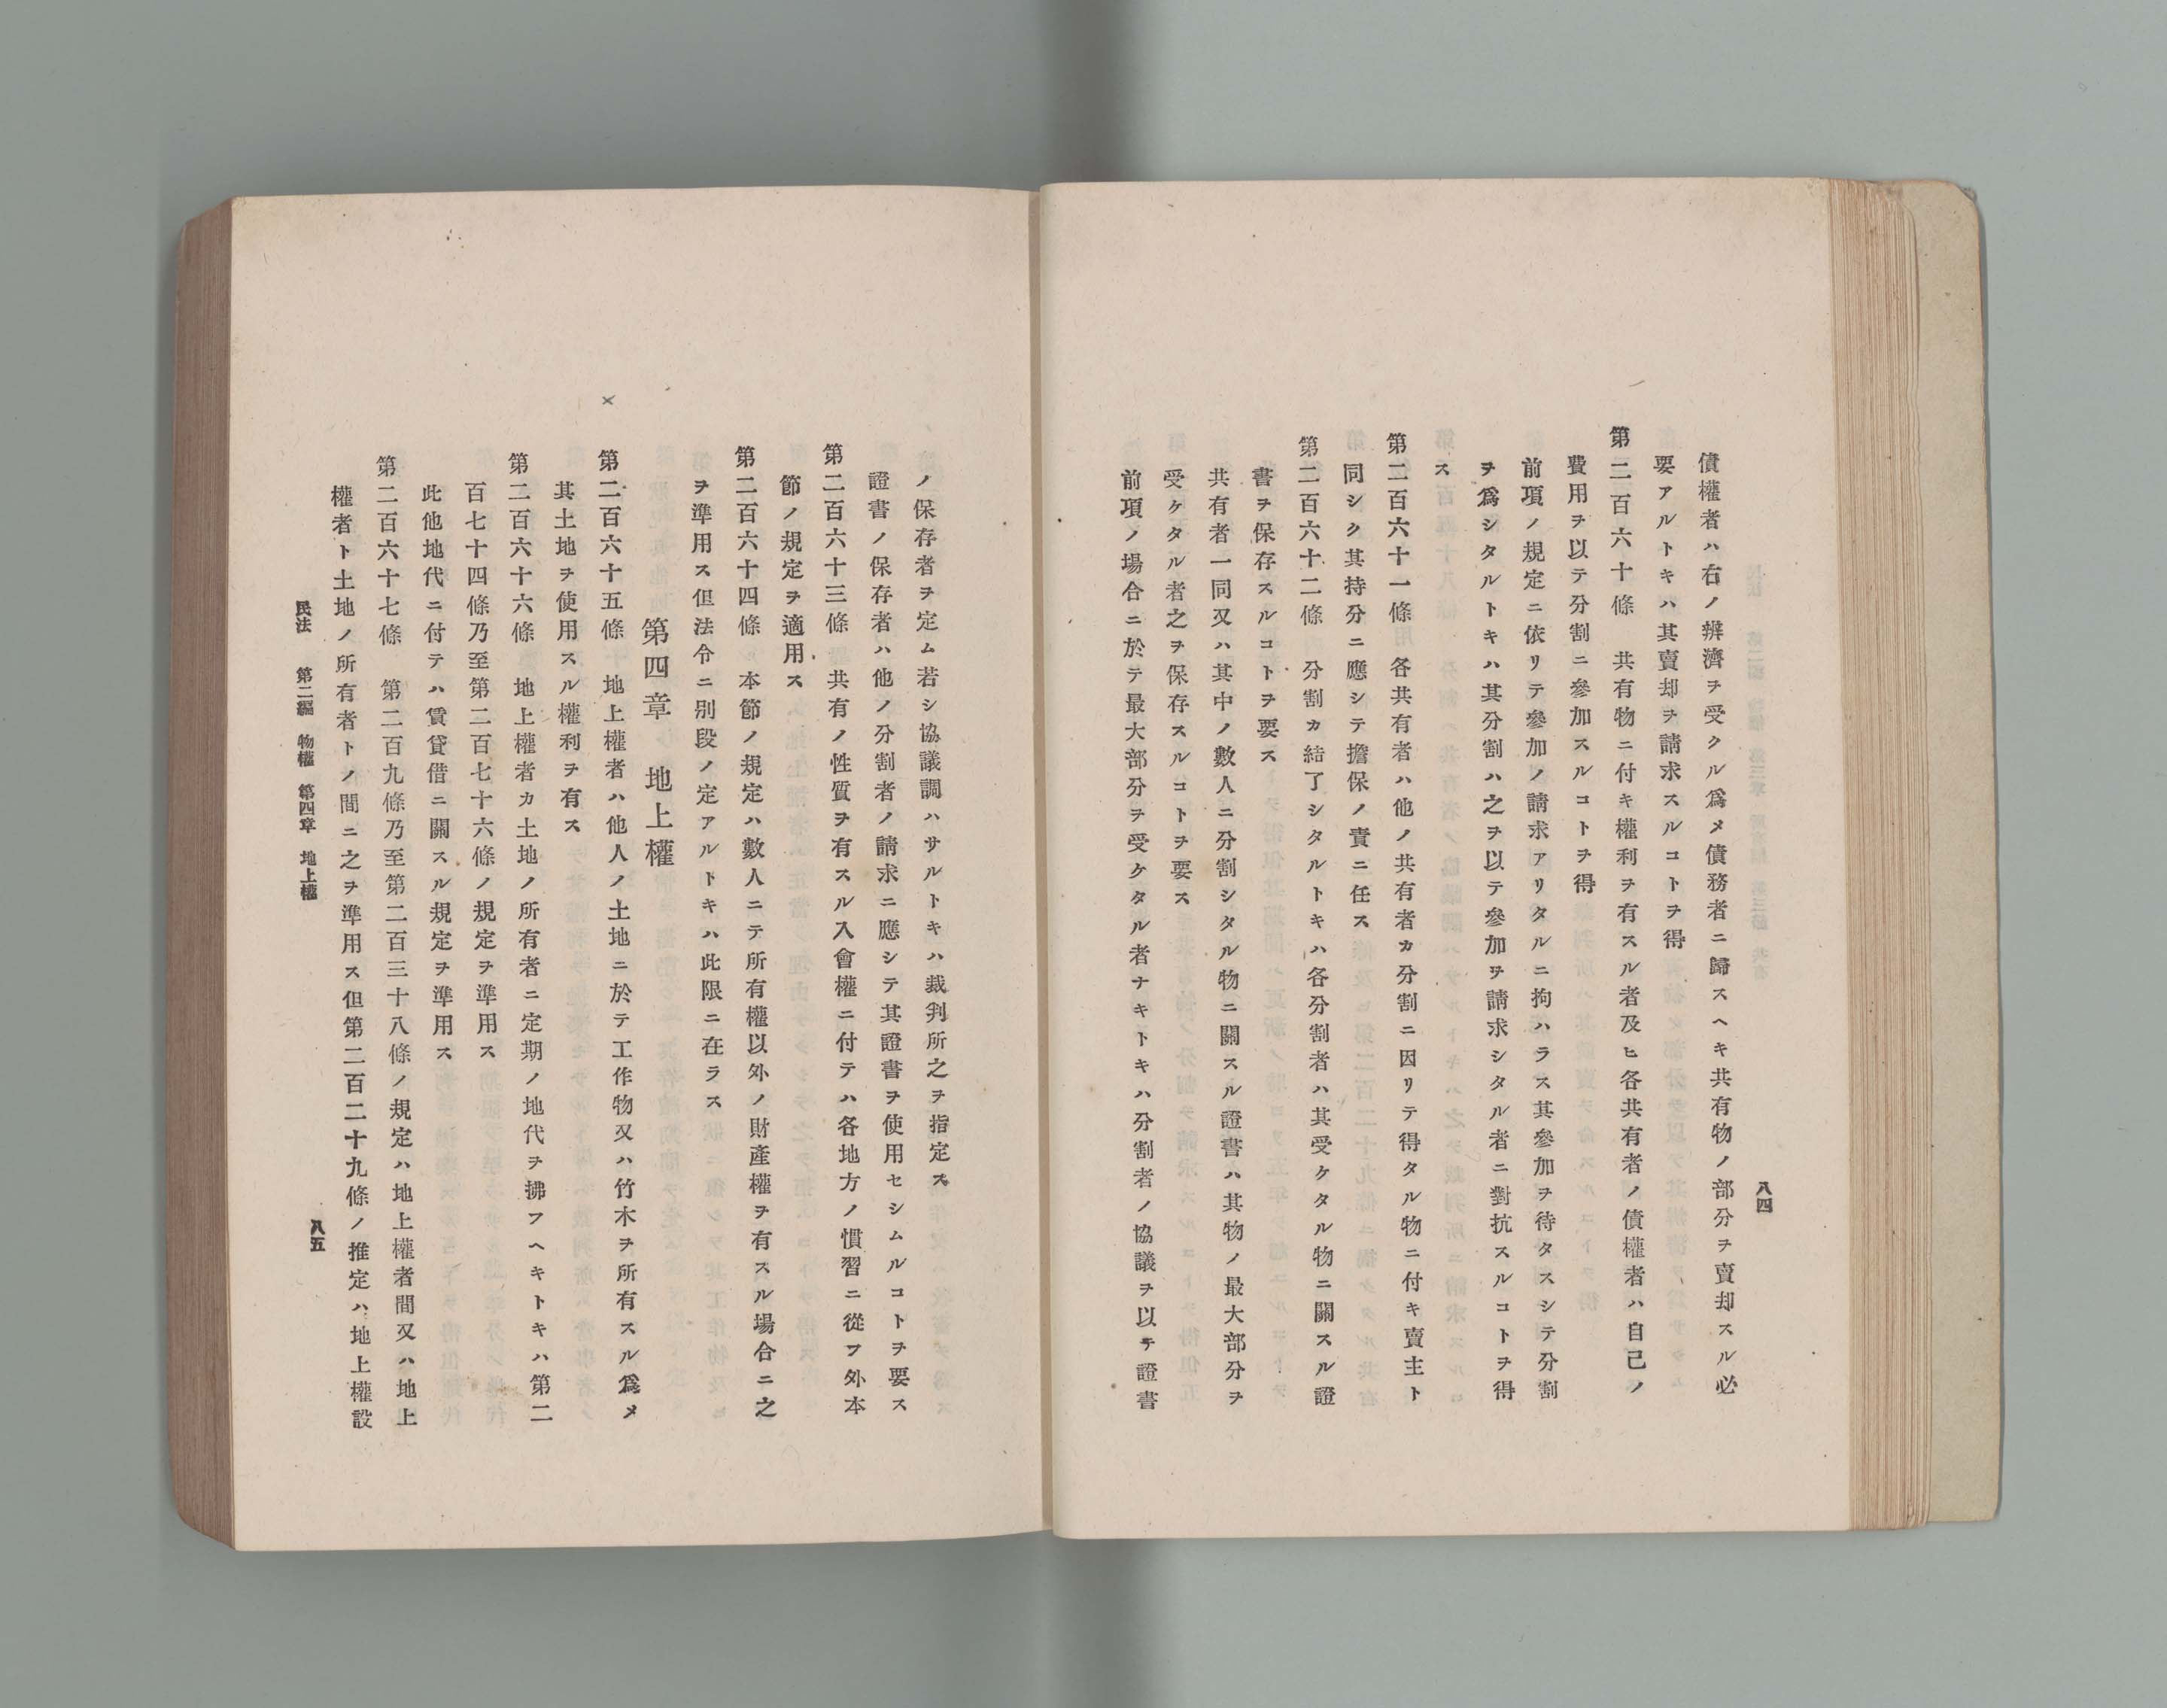 八四
債權者ハ右ノ辨濟ヲ受クル爲メ債務者ニ歸スヘキ共有物ノ部分ヲ賣却スル必
要アルトキハ其賣却ヲ請求スルコトヲ得
第二百六十條　共有物ニ付キ權利ヲ有スル者及ヒ各共有者ノ債權者ハ自己ノ
費用ヲ以テ分割ニ參加スルコトヲ得
前項ノ規定ニ依リテ參加ノ請求アリタルニ拘ハラス其參加ヲ待タスシテ分割
ヲ爲シタルトキハ其分割ハ之ヲ以テ參加ヲ請求シタル者ニ對抗スルコトヲ得
ス
第二百六十一條　各共有者ハ他ノ共有者カ分割ニ因リテ得タル物ニ付キ賣主ト
同シク其持分ニ應シテ擔保ノ責ニ任ス
第二百六十二條　分割カ結了シタルトキハ各分割者ハ其受ケタル物ニ關スル證
書ヲ保存スルコトヲ要ス
共有者一同又ハ其中ノ數人ニ分割シタル物ニ關スル證書ハ其物ノ最大部分ヲ
受ケタル者之ヲ保存スルコトヲ要ス
前項ノ場合ニ於テ最大部分ヲ受ケタル者ナキトキハ分割者ノ協議ヲ以テ證書
ノ保存者ヲ定ム若シ協議調ハサルトキハ裁判所之ヲ指定ス
證書ノ保存者ハ他ノ分割者ノ請求ニ應シテ其證書ヲ使用セシムルコトヲ要ス
第二百六十三條　共有ノ性質ヲ有スル入會權ニ付テハ各地方ノ慣習ニ從フ外本
節ノ規定ヲ適用ス
第二百六十四條　本節ノ規定ハ數人ニテ所有權以外ノ財產權ヲ有スル場合ニ之
ヲ準用ス但法令ニ別段ノ定アルトキハ此限ニ在ラス
第四章　地上權
第二百六十五條　地上權者ハ他人ノ土地ニ於テ工作物又ハ竹木ヲ所有スル爲メ
其土地ヲ使用スル權利ヲ有ス
第二百六十六條　地上權者カ土地ノ所有者ニ定期ノ地代ヲ拂フヘキトキハ第二
百七十四條乃至第二百七十六條ノ規定ヲ準用ス
此他地代ニ付テハ賃貸借ニ關スル規定ヲ準用ス
第二百六十七條　第二百九條乃至第二百三十八條ノ規定ハ地上權者間又ハ地上
權者ト土地ノ所有者トノ間ニ之ヲ準用ス但第二百二十九條ノ推定ハ地上權設
民法　第二編　物權　第四章　地上權
八五